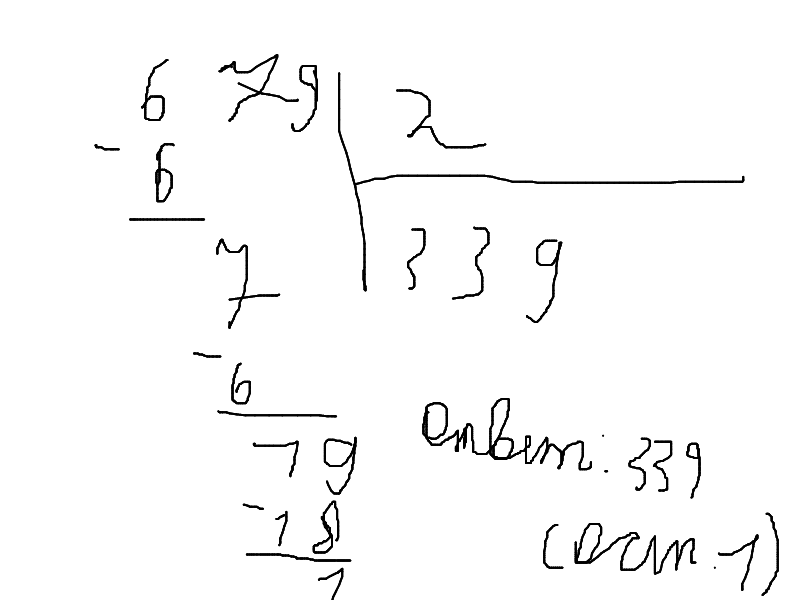 679 2
- 6
339
7
- 6
19
- 18
1
Ответ: 339
(ост. 1)